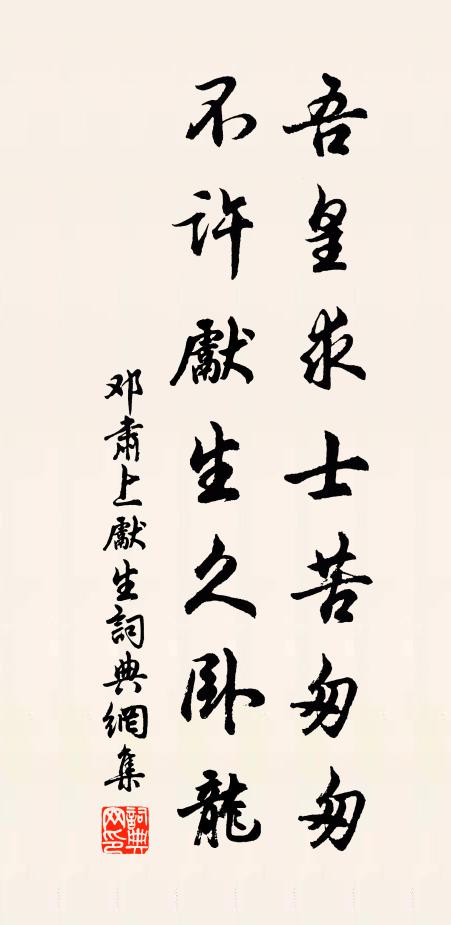 吾皇求士苦匆匆
不許獻生久卧龍
邓肅上獻生詞典網集
詞典網印